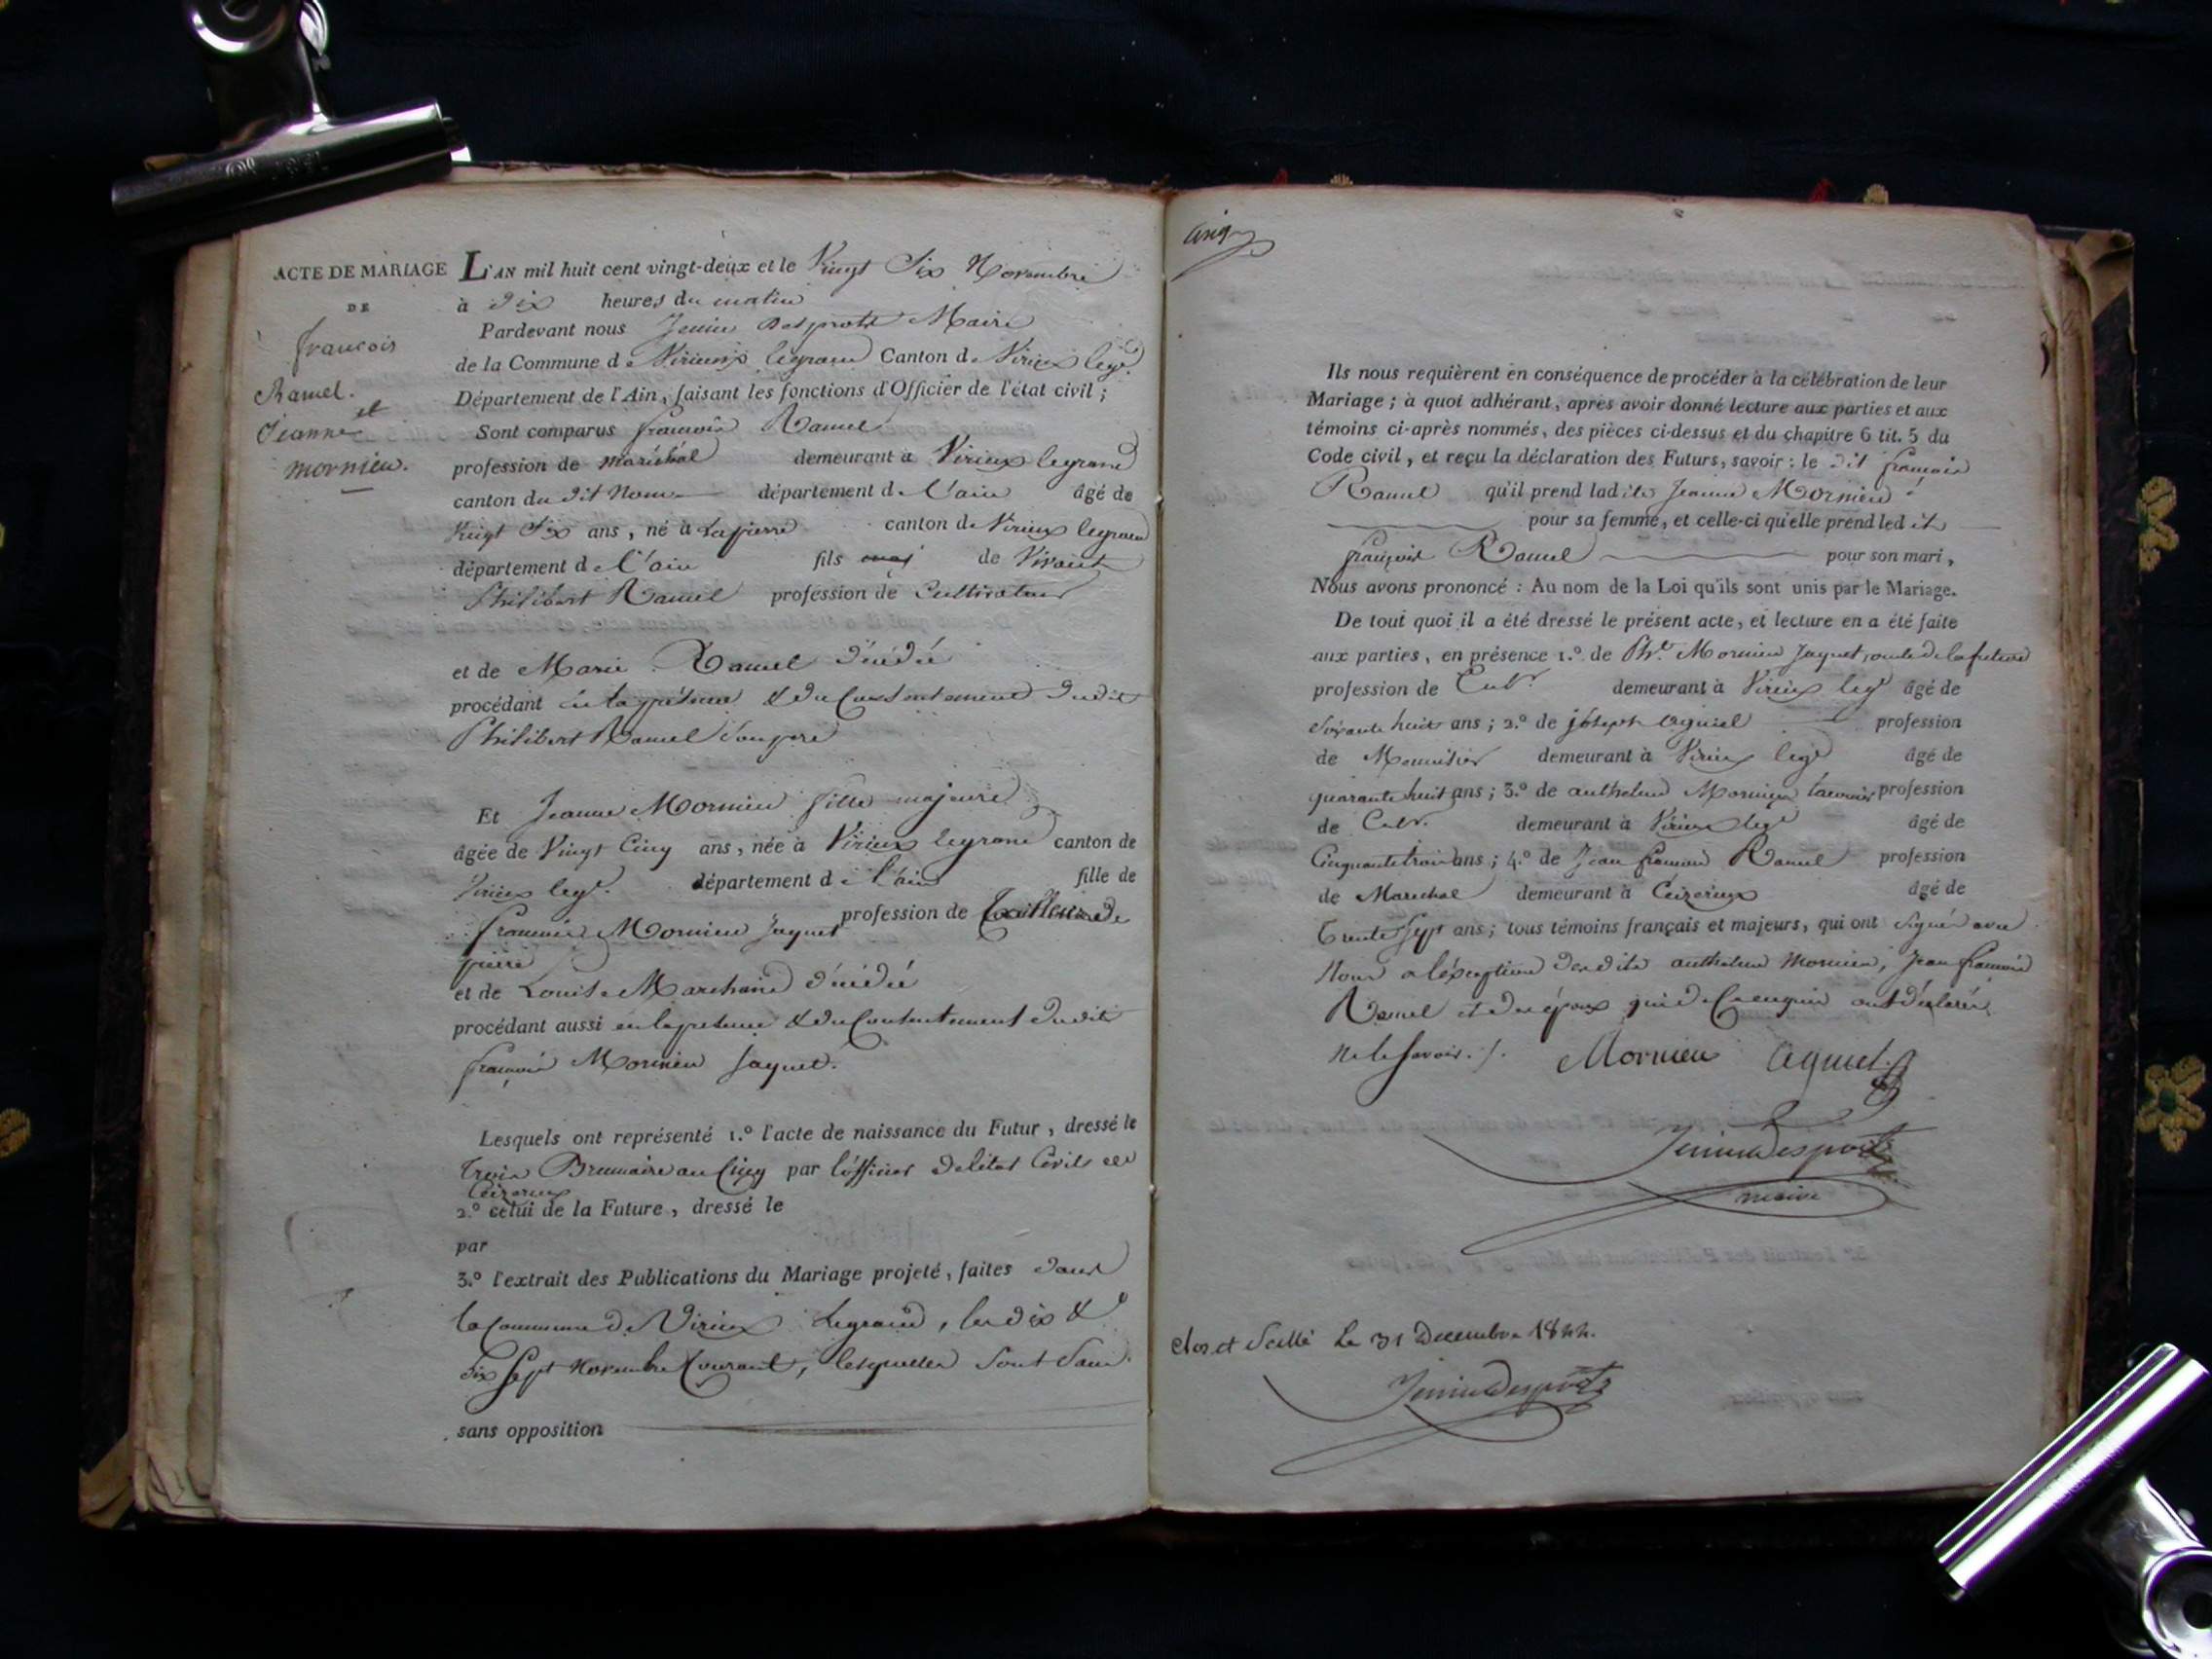 ACTE DE MARIAGE
DE
françois
Ramel.
et
Jeanne
mornieu.
L'AN mil huit cent vingt-deux et le Vingt Six Novembre
à Dix heures du matin
Pardevant nous Jenin Desprots Maire
de la Commune de Virieux legrand Canton de Virieux legd.
Département de l'Ain, faisant les fonctions d'Officier de l'état civil;
Sont comparus françois Ramel
profession de maréchal demeurant à Virieux legrand
canton du dit Nom département de l'ain âgé de
Vingt Six ans, né à Lapierre canton de Virieux legrand
département de l'ain fils de Vivant
Philibert Ramel profession de Cultivateur
et de Marie Ramel décédée
procédant en la présence & du Consentement dudit
Philibert Ramel Son père
Et Jeanne Mornieu fille majeure
âgée de Vingt Cinq ans, née à Virieux legrand canton de
Virieux legd. département de l'ain fille de
françois Mornieu Jaquet profession de Tailleur de
pierre
et de Louise Marchand décédée
procédant aussi en la presence & du Consentement dudit
françois Mornieu Jaquet.
Lesquels ont représenté 1.° l'acte de naissance du Futur, dressé le
Trois Brumaire an Cinq par l'officier de l'état Civil de
Ceizerieux
2.° celui de la Future, dressé le
par
3.° l'extrait des Publications du Mariage projeté, faites dans
la Commune de Virieux Legrand, les dix &
dix Sept Novembre Courant, lesquelles Sont Sans
sans opposition
Ils nous requièrent en conséquence de procéder à la célébration de leur
Mariage; à quoi adhérant, après avoir donné lecture aux parties et aux
témoins ci-après nommés, des pièces ci-dessus et du chapitre 6 tit. 5 du
Code civil, et reçu la déclaration des Futurs, savoir: le dit françois
Ramel qu'il prend ladite Jeanne Mornieu
pour sa femme, et celle-ci qu'elle prend ledit
françois Ramel pour son mari,
Nous avons prononcé: Au nom de la Loi qu'ils sont unis par le Mariage.
De tout quoi il a été dressé le présent acte, et lecture en a été faite
aux parties, en présence 1.° de Pht. Mornieu Jaquet, oncle de la future
profession de Cultr. demeurant à Virieux legd âgé de
Soixante huit ans; 2.° de joseph aguiel profession
de Menuisier demeurant à Virieux legd âgé de
quarante huit ans; 3.° de anthelme Mornieu profession
de Cultr. demeurant à Virieux legd âgé de
Cinquante trois ans; 4.° de Jean françois Ramel profession
de Marechal demeurant à Ceizerieux âgé de
Trente Sept ans; tous témoins français et majeurs, qui ont Signé avec
Nous a léxception desdits anthelme Mornieu, Jean françois
Ramel et des époux qui de Ce enquis ont déclarés
Ne le Savoir ./. Mornieu aguiel
Jenin Desprots
maire
clos et Scellé Le 31 Decembre 1822.
Jenin Desprots